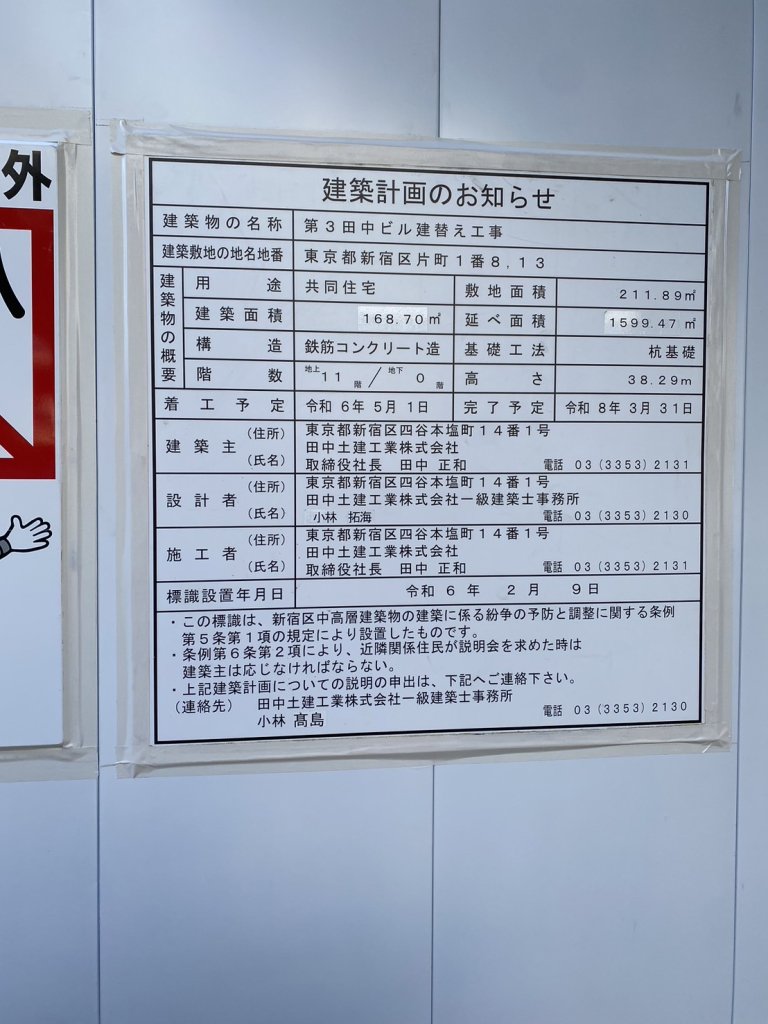 外
建築計画のお知らせ
建築物の名称 第3田中ビル建替え工事
建築敷地の地名地番 東京都新宿区片町1番8,13
建築物の概要
用途 共同住宅 敷地面積 211.89㎡
建築面積 168.70㎡ 延べ面積 1599.47㎡
構造 鉄筋コンクリート造 基礎工法 杭基礎
階数 地上11階/地下0階 高さ 38.29m
着工予定 令和 6年 5月 1日 完了予定 令和 8年 3月 31日
建築主 (住所) 東京都新宿区四谷本塩町14番1号
田中土建工業株式会社
(氏名) 取締役社長 田中 正和 電話 03(3353)2131
設計者 (住所) 東京都新宿区四谷本塩町14番1号
田中土建工業株式会社一級建築士事務所
(氏名) 小林 拓海 電話 03(3353)2130
施工者 (住所) 東京都新宿区四谷本塩町14番1号
田中土建工業株式会社
(氏名) 取締役社長 田中 正和 電話 03(3353)2131
標識設置年月日 令和 6 年 2 月 9 日
・この標識は、新宿区中高層建築物の建築に係る紛争の予防と調整に関する条例
第5条第1項の規定により設置したものです。
・条例第6条第2項により、近隣関係住民が説明会を求めた時は
建築主は応じなければならない。
・上記建築計画についての説明の申出は、下記へご連絡下さい。
(連絡先) 田中土建工業株式会社一級建築士事務所
小林 髙島 電話 03(3353)2130